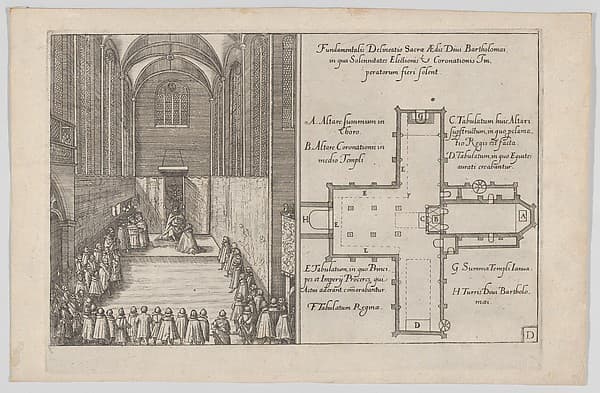 Fundamentalis Delineatio Sacræ Ædis Diui Bartholomæi
in qua Solennitates Electionis & Coronationis Im,
peratorum fieri solent
A. Altare summum in
choro.
B. Altare Coronationis in
medio Templi
C. Tabulatum huic Altari
substructum, in quo
Regis est facta
D. Tabulatum, in quo Equites
aurati creabantur.
G
E
F
H
E
C
B
A
E
E. Tabulatum, in quo Princi,
pes et Imperij Proceres, qui
Actui aderant
F. Tabulatum Reginæ
G. Summa Templi Ianua
H. Turris Diui Bartholo,
mæi.
D
D